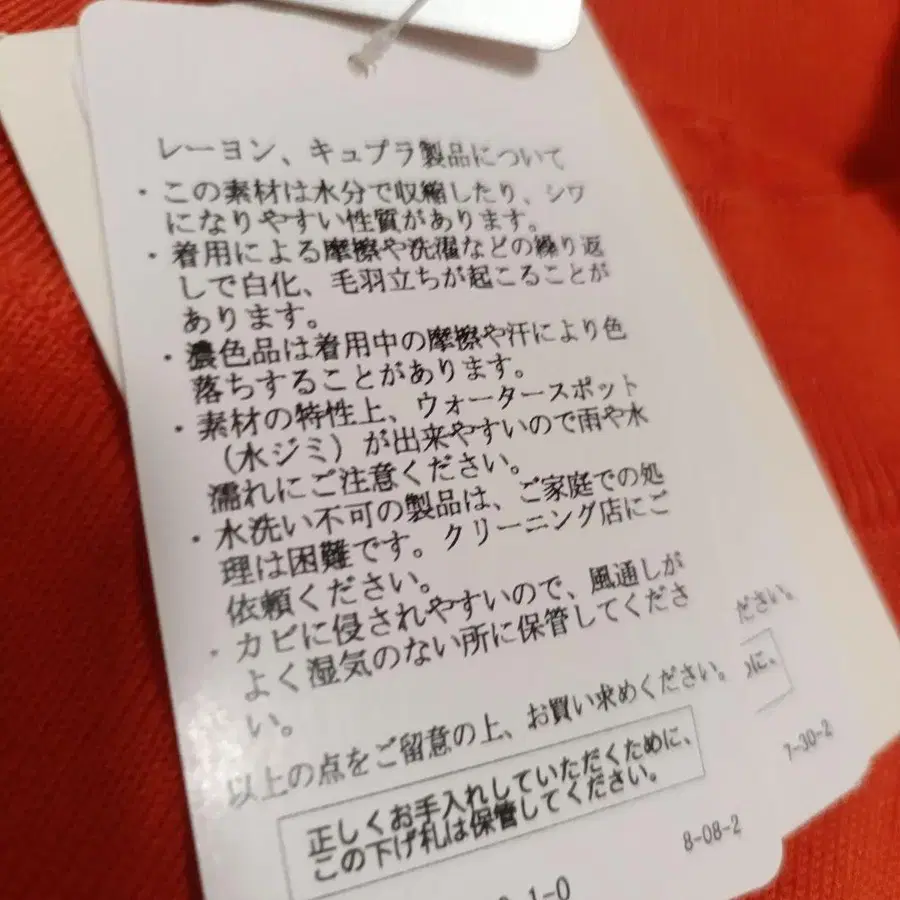 レーヨン、キュプラ製品について
・この素材は水分で収縮したり、シワ
になりやすい性質があります。
・着用による摩擦や洗濯などの繰り返
しで白化、毛羽立ちが起こることが
あります。
・濃色品は着用中の摩擦や汗により色
落ちすることがあります。
・素材の特性上、ウォータースポット
（水ジミ）が出来やすいので雨や水
濡れにご注意ください。
・水洗い不可の製品は、ご家庭での処
理は困難です。クリーニング店にご
依頼ください。
・カビに侵されやすいので、風通しが
よく湿気のない所に保管してくださ
い。
以上の点をご留意の上、お買い求めください。
正しくお手入れしていただくために、
この下げ札は保管してください。
8-08-2
1-0
ださい。
に、
7-30-2